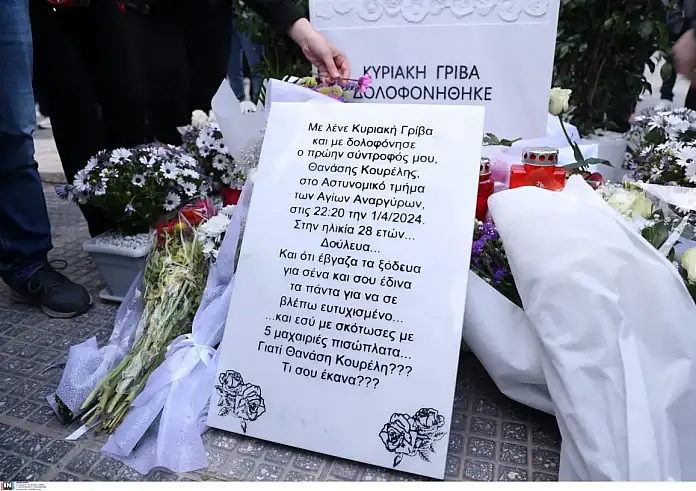 ΚΥΡΙΑΚΗ ΓΡΙΒΑ
ΔΟΛΟΦΟΝΗΘΗΚΕ
Με λένε Κυριακή Γρίβα
και με δολοφόνησε
ο πρώην σύντροφός μου,
Θανάσης Κουρέλης,
στο Αστυνομικό τμήμα
των Αγίων Αναργύρων,
στις 22:20 την 1/4/2024.
Στην ηλικία 28 ετών...
Δούλευα...
Και ότι έβγαζα τα ξόδευα
για σένα και σου έδινα
τα πάντα για να σε
βλέπω ευτυχισμένο...
...και εσύ με σκότωσες με
5 μαχαιριές πισώπλατα...
Γιατί Θανάση Κουρέλη???
Τι σου έκανα???